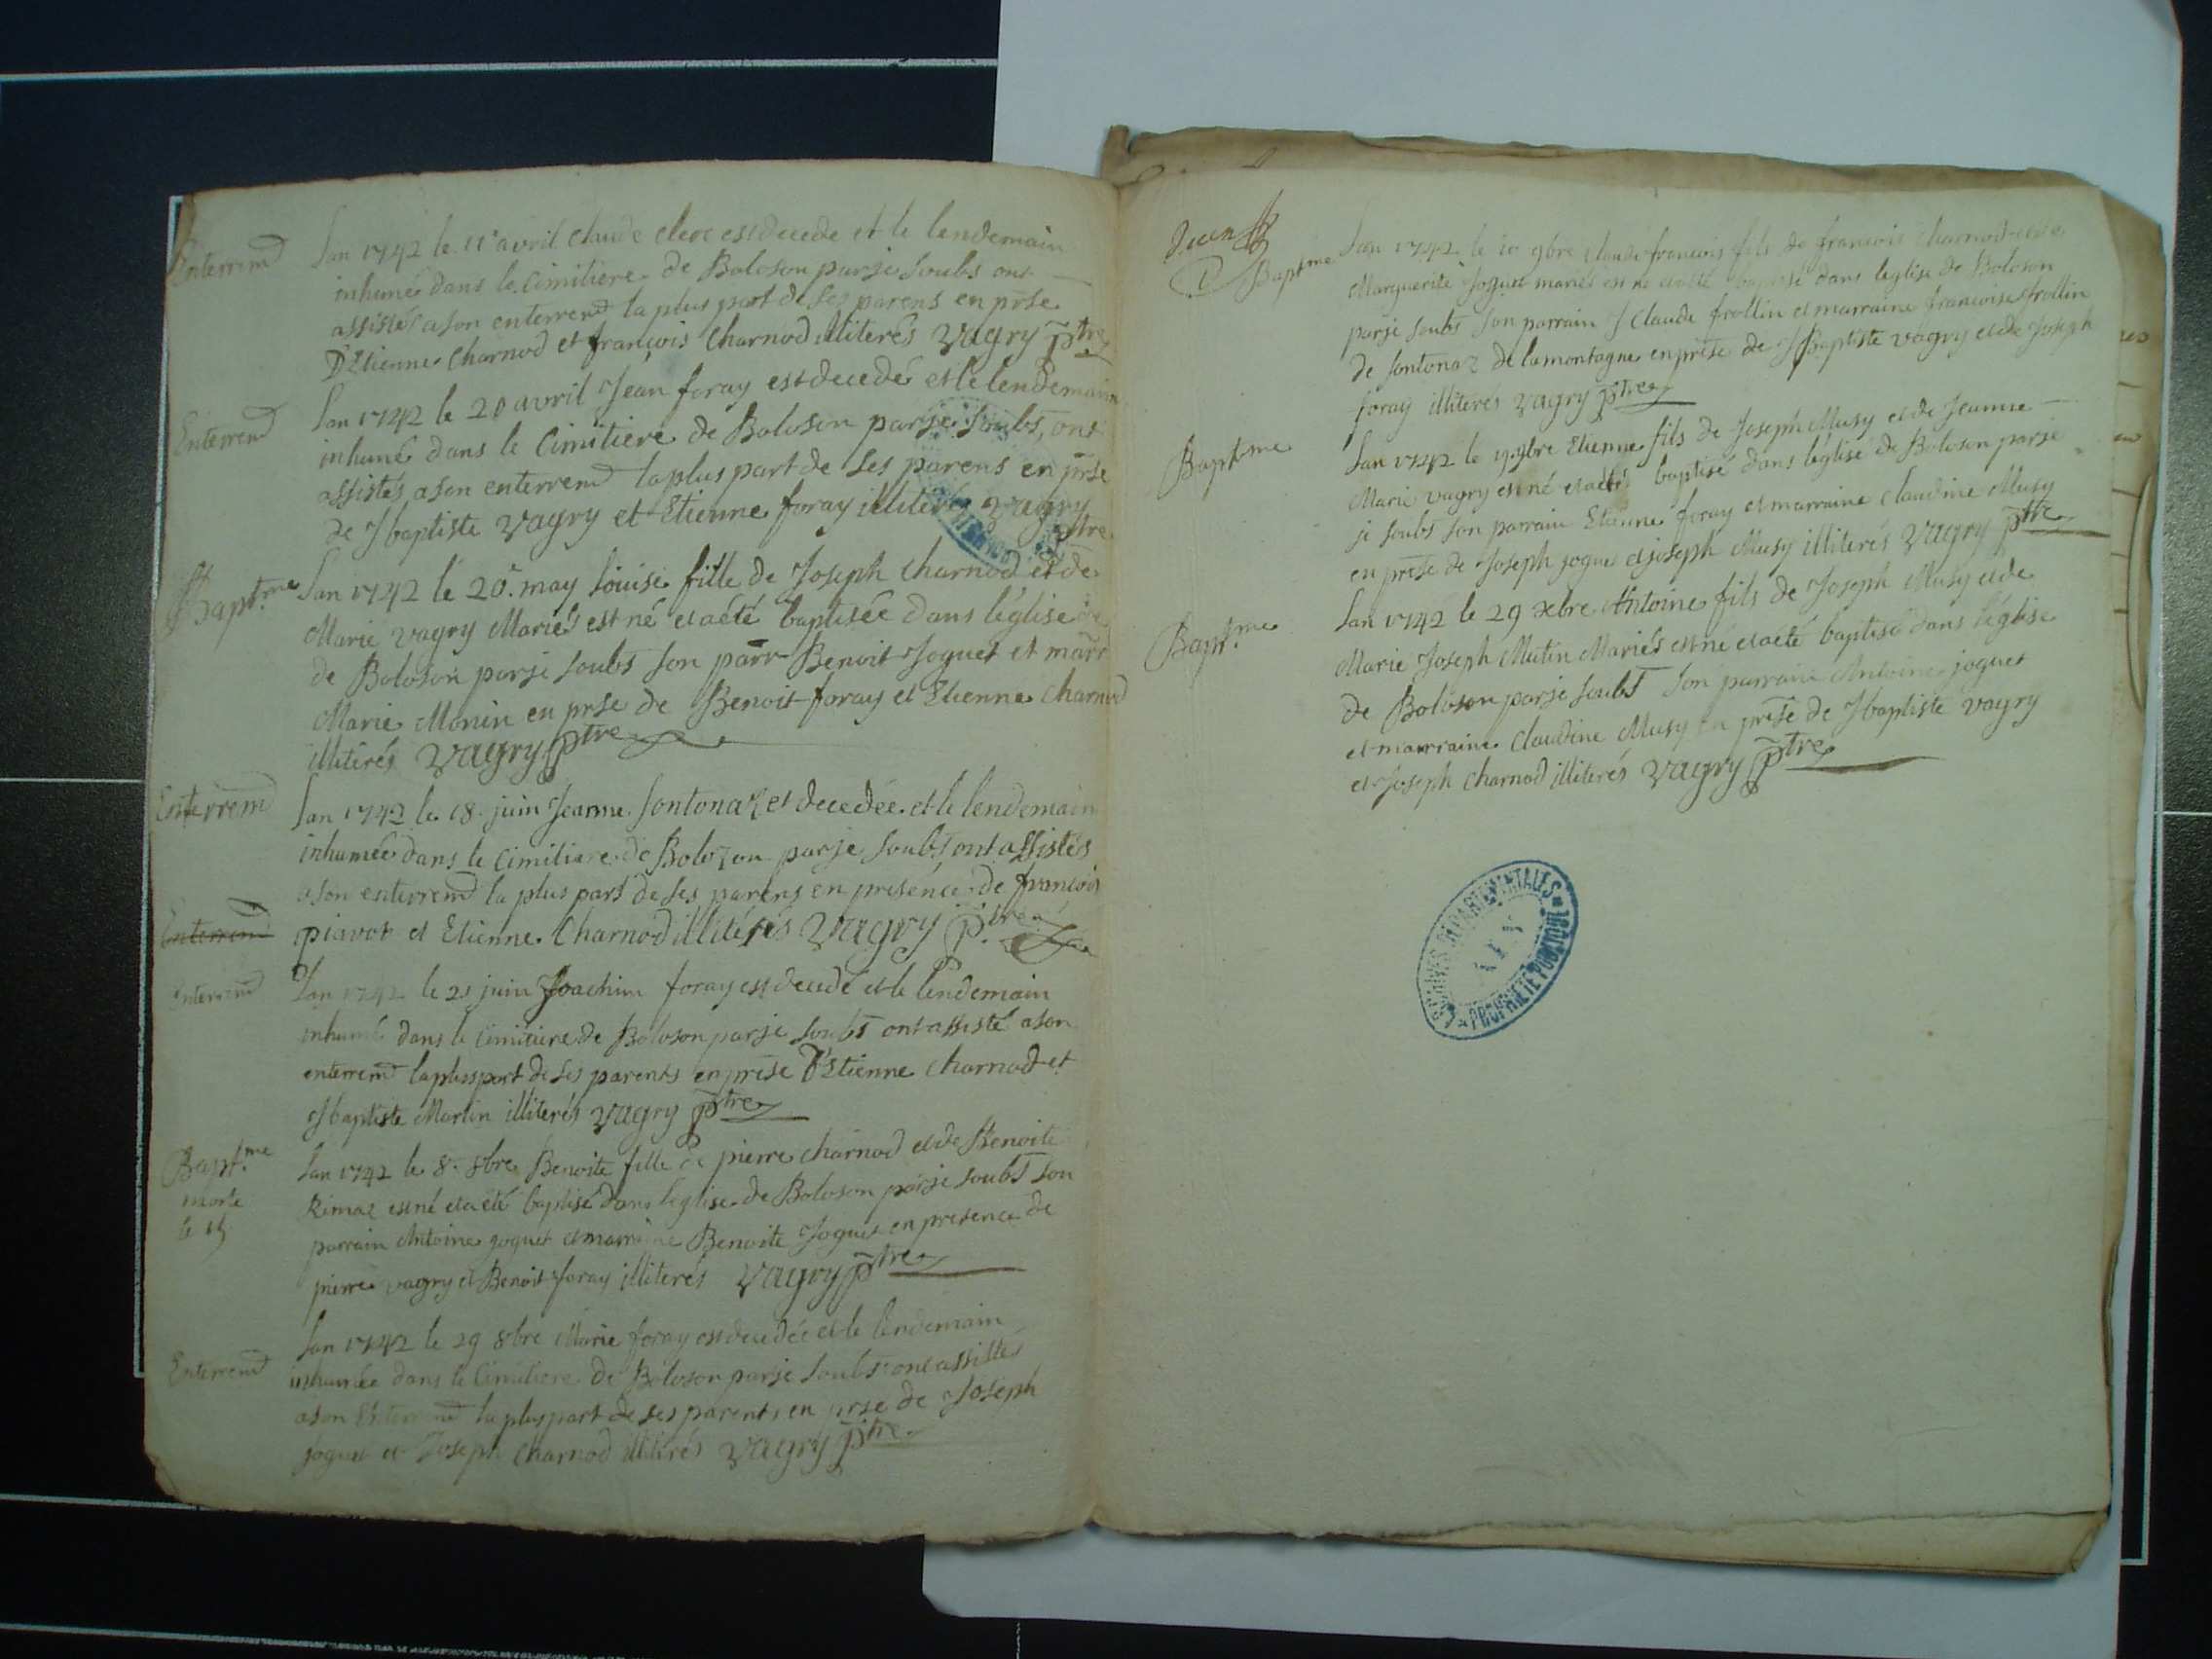 Enterremd
Lan 1742 le 11e avril Claude clerc est decede et le lendemain
inhumé dans le Cimitiere de Boloson parje soubs ont
assistés a son enterremd la plus part de ses parens en prse
D'Etienne Charnod et françois Charnod illiterés Vagry ptre
Enterremd
Lan 1742 le 20 avril Jean foray est decedé et le lendemain
inhumé dans le Cimitiere de Boloson parje soubs, ont
assistés a son enterremd la plus part de ses parens en prse
de Jbaptiste Vagry et Etienne foray illiterés Vagry
ptre
Baptme
Lan 1742 le 20e may Louise fille de Joseph Charnod et de
Marie vagry Mariés est né et a été baptisée dans l'église
de Boloson parje soubs son parr Benoit Joguet et marr
Marie Monin en prse de Benoit foray et Etienne Charnod
illiterés Vagry ptre
Enterremd
Lan 1742 le 18. juin Jeanne Sontonaz et decedée et le lendemain
inhumée dans le Cimitiere de Bolozon parje soubs ont assistés
a son enterremd la plus part de ses parens en presence de françois
Enterremd
piavot et Etienne Charnod illiterés Vagry ptre
Enterremd
Lan 1742 le 21 juin Joachim foray est decedé et le lendemain
inhumé dans le Cimitiere de Boloson parje soubs ont assisté a son
enterremd la plus part de ses parents en prese D'Etienne Charnod et
Jbaptiste Martin illiterés Vagry ptre
Baptme
morte
le 15
Lan 1742 le 8e 8bre Benoite fille de pierre Charnod et de Benoite
Rimaz est né et a été baptisé dans leglise de Boloson parje soubs son
parrain Antoine joguet et marraine Benoite Joguet en presence de
pierre vagry et Benoit foray illiterés Vagry ptre
Enterremd
Lan 1742 le 29 8bre Marie foray est decedée et le lendemain
inhumée dans le Cimitiere de Boloson parje soubs ont assistés
a son Enterremd la plus part de ses parents en prse de Joseph
joguet et Joseph Charnod illiterés Vagry ptre
Baptme
Lan 1742 le 10 9bre Claude françois fils de francois Charnod et de
Marguerite Joguet mariés est né et a été baptisé dans leglise de Boloson
parje soubs son parrain J Claude frollin et marraine francoise frollin
de Sontonaz de la montagne en prese de JBaptiste vagry et de Joseph
foray illiterés Vagry ptre
Baptme
Lan 1742 le 19 9bre Etienne fils de Joseph Musy et de Jeanne
Marie vagry est né et a été baptisé dans l'église de Boloson parje
je soubs son parrain Etienne foray et marraine Claudine Musy
en prese de Joseph joguet et joseph Musy illiterés Vagry ptre
Baptme
Lan 1742 le 29 xbre Antoine fils de Joseph Musy et de
Marie Joseph Mutin Mariés est né et a été baptisé dans l'église
de Boloson parje soubs son parrain Antoine joguet
et marraine Claudine Musy en prese de Jbaptiste vagry
et Joseph Charnod illiterés Vagry ptre
ARCHIVES DEPARTEMENTALES
AIN
PROPRIETE PUBLIQUE